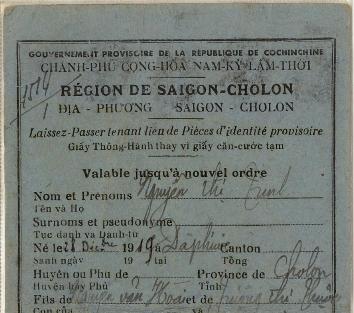 GOUVERNEMENT PROVISOIRE DE LA RÉPUBLIQUE DE COCHINCHINE
CHÁNH-PHỦ CỌNG-HÒA NAM-KỲ LÂM-THỜI
RÉGION DE SAIGON-CHOLON
ĐỊA - PHƯƠNG SAIGON - CHOLON
Laissez-Passer tenant lieu de Pièces d'identité provisoire
Giấy Thông-Hành thay vì giấy căn-cước tạm
Valable jusqu'à nouvel ordre
Nom et Prénoms Nguyễn thị
Tên và Họ
Surnoms et pseudonyme
Tục danh và Danh-tự
Né le 28 19 à Canton
Sanh ngày 19 tại Tổng
Huyện ou Phu de Province de Cholon
Huyện hay Phủ Tỉnh
Fils de văn et de thị
Con của